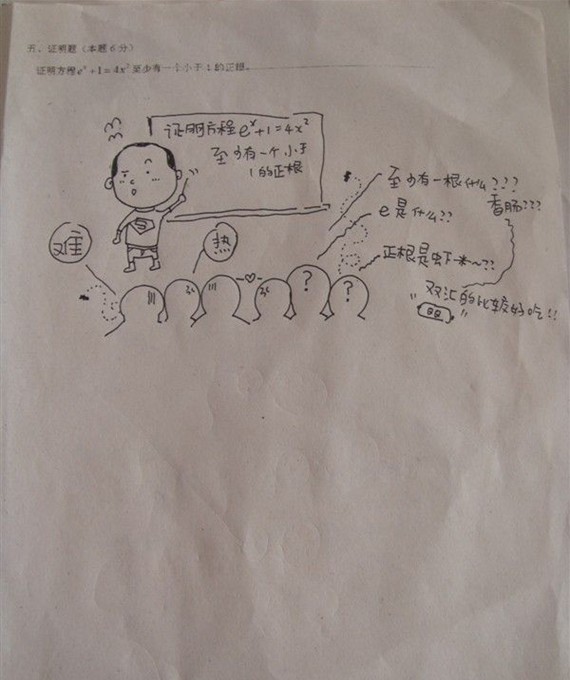 五、证明题（本题6分）
证明方程eˣ+1=4x²至少有一个小于1的正根。
证明方程eˣ+1=4x²
至少有一个小于
1的正根
至少有一根什么???
香肠???
e是什么??
难
热
正根是虾米~??
双汇的比较好吃!!
?
?